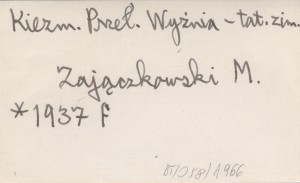 Kiezm. Przeł. Wyżnia – tat. zim.
Zajączkowski M.
*1937 f
/058/1966